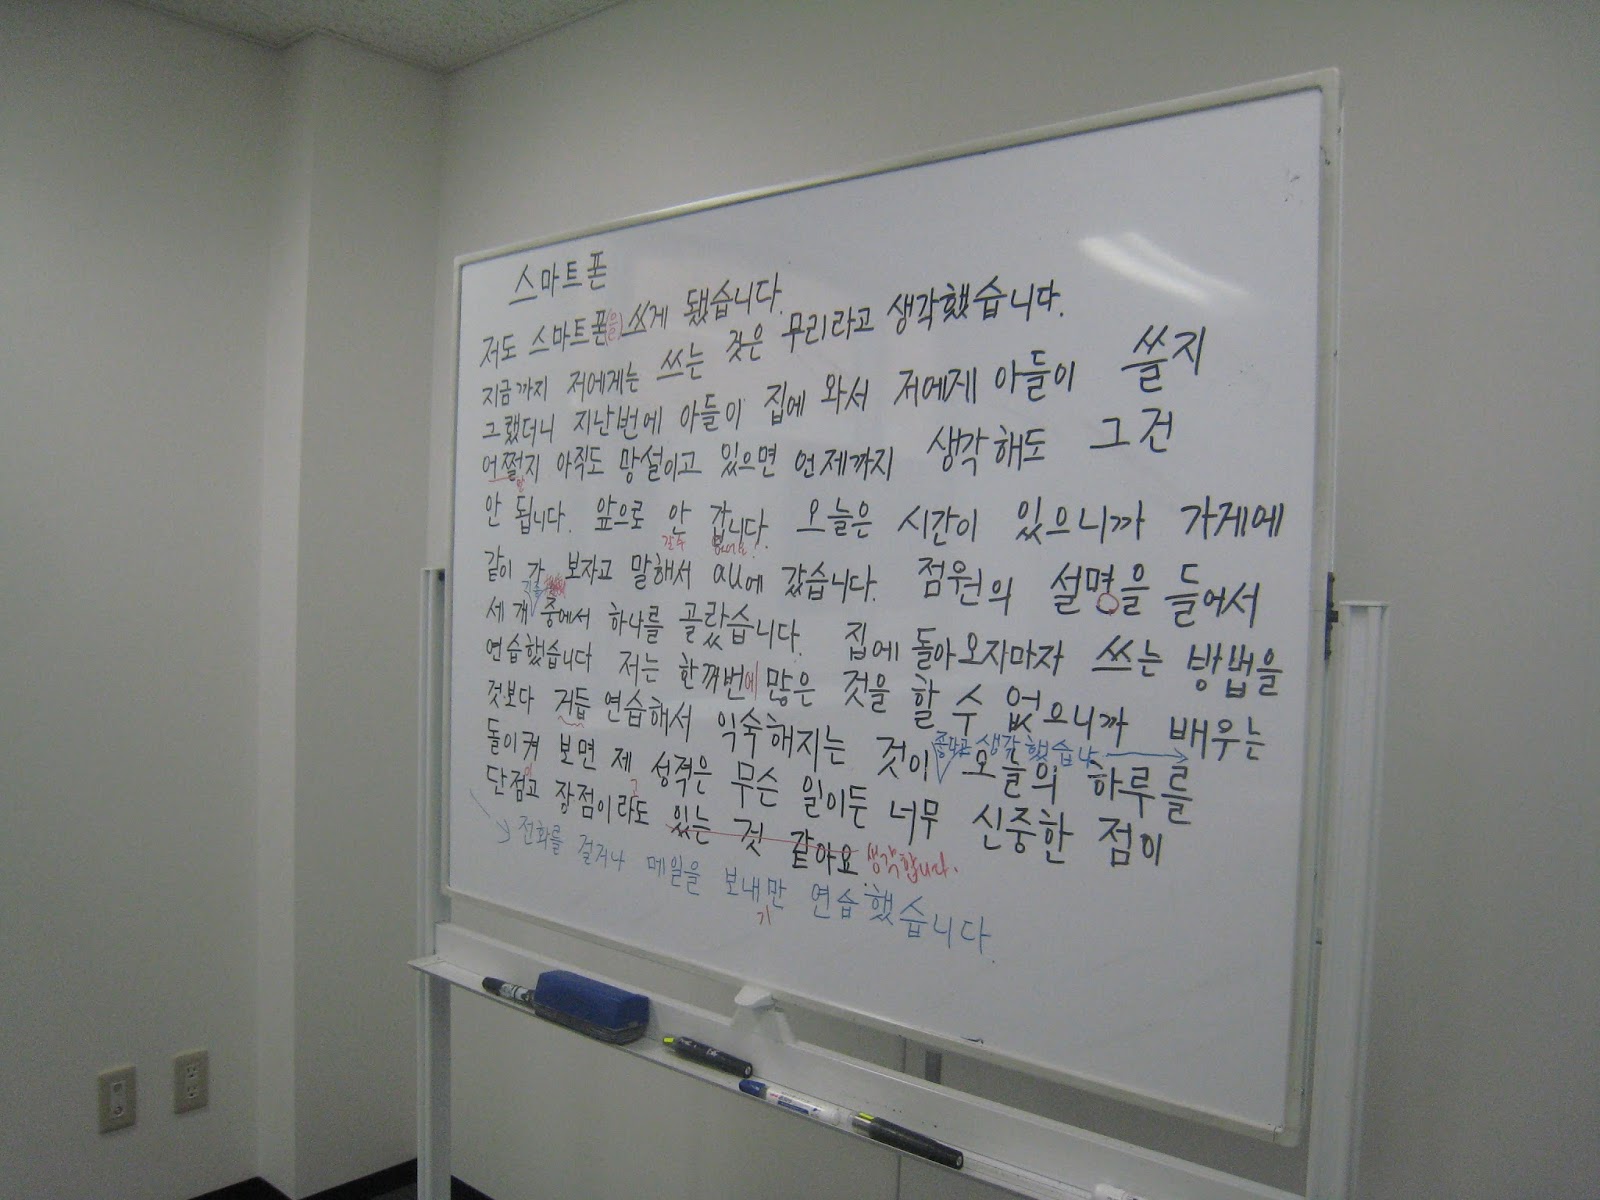 스마트폰
저도 스마트폰(을) 쓰게 됐습니다.
지금까지 저에게는 쓰는 것은 무리라고 생각했습니다.
그랬더니 지난번에 아들이 집에 와서 저에게 아들이 쓸지
어쩔지 아직도 망설이고 있으면 언제까지 생각해도 그건
안 됩니다. 앞으로 안 갑니다. 오늘은 시간이 있으니까 가게에
갈 수 없어요.
같이 가 보자고 말해서 au에 갔습니다. 점원의 설명을 들어서
세 개 중에서 하나를 골랐습니다. 집에 돌아오자마자 쓰는 방법을
연습했습니다 저는 한꺼번에 많은 것을 할 수 없으니까 배우는
것보다 거듭 연습해서 익숙해지는 것이 오늘의 하루를
좋다고 생각했습니다
돌이켜 보면 제 성격은 무슨 일이든 너무 신중한 점이
단점이고 장점이라도 있는 것 같아요 생각합니다.
전화를 걸거나 메일을 보내기만 연습했습니다